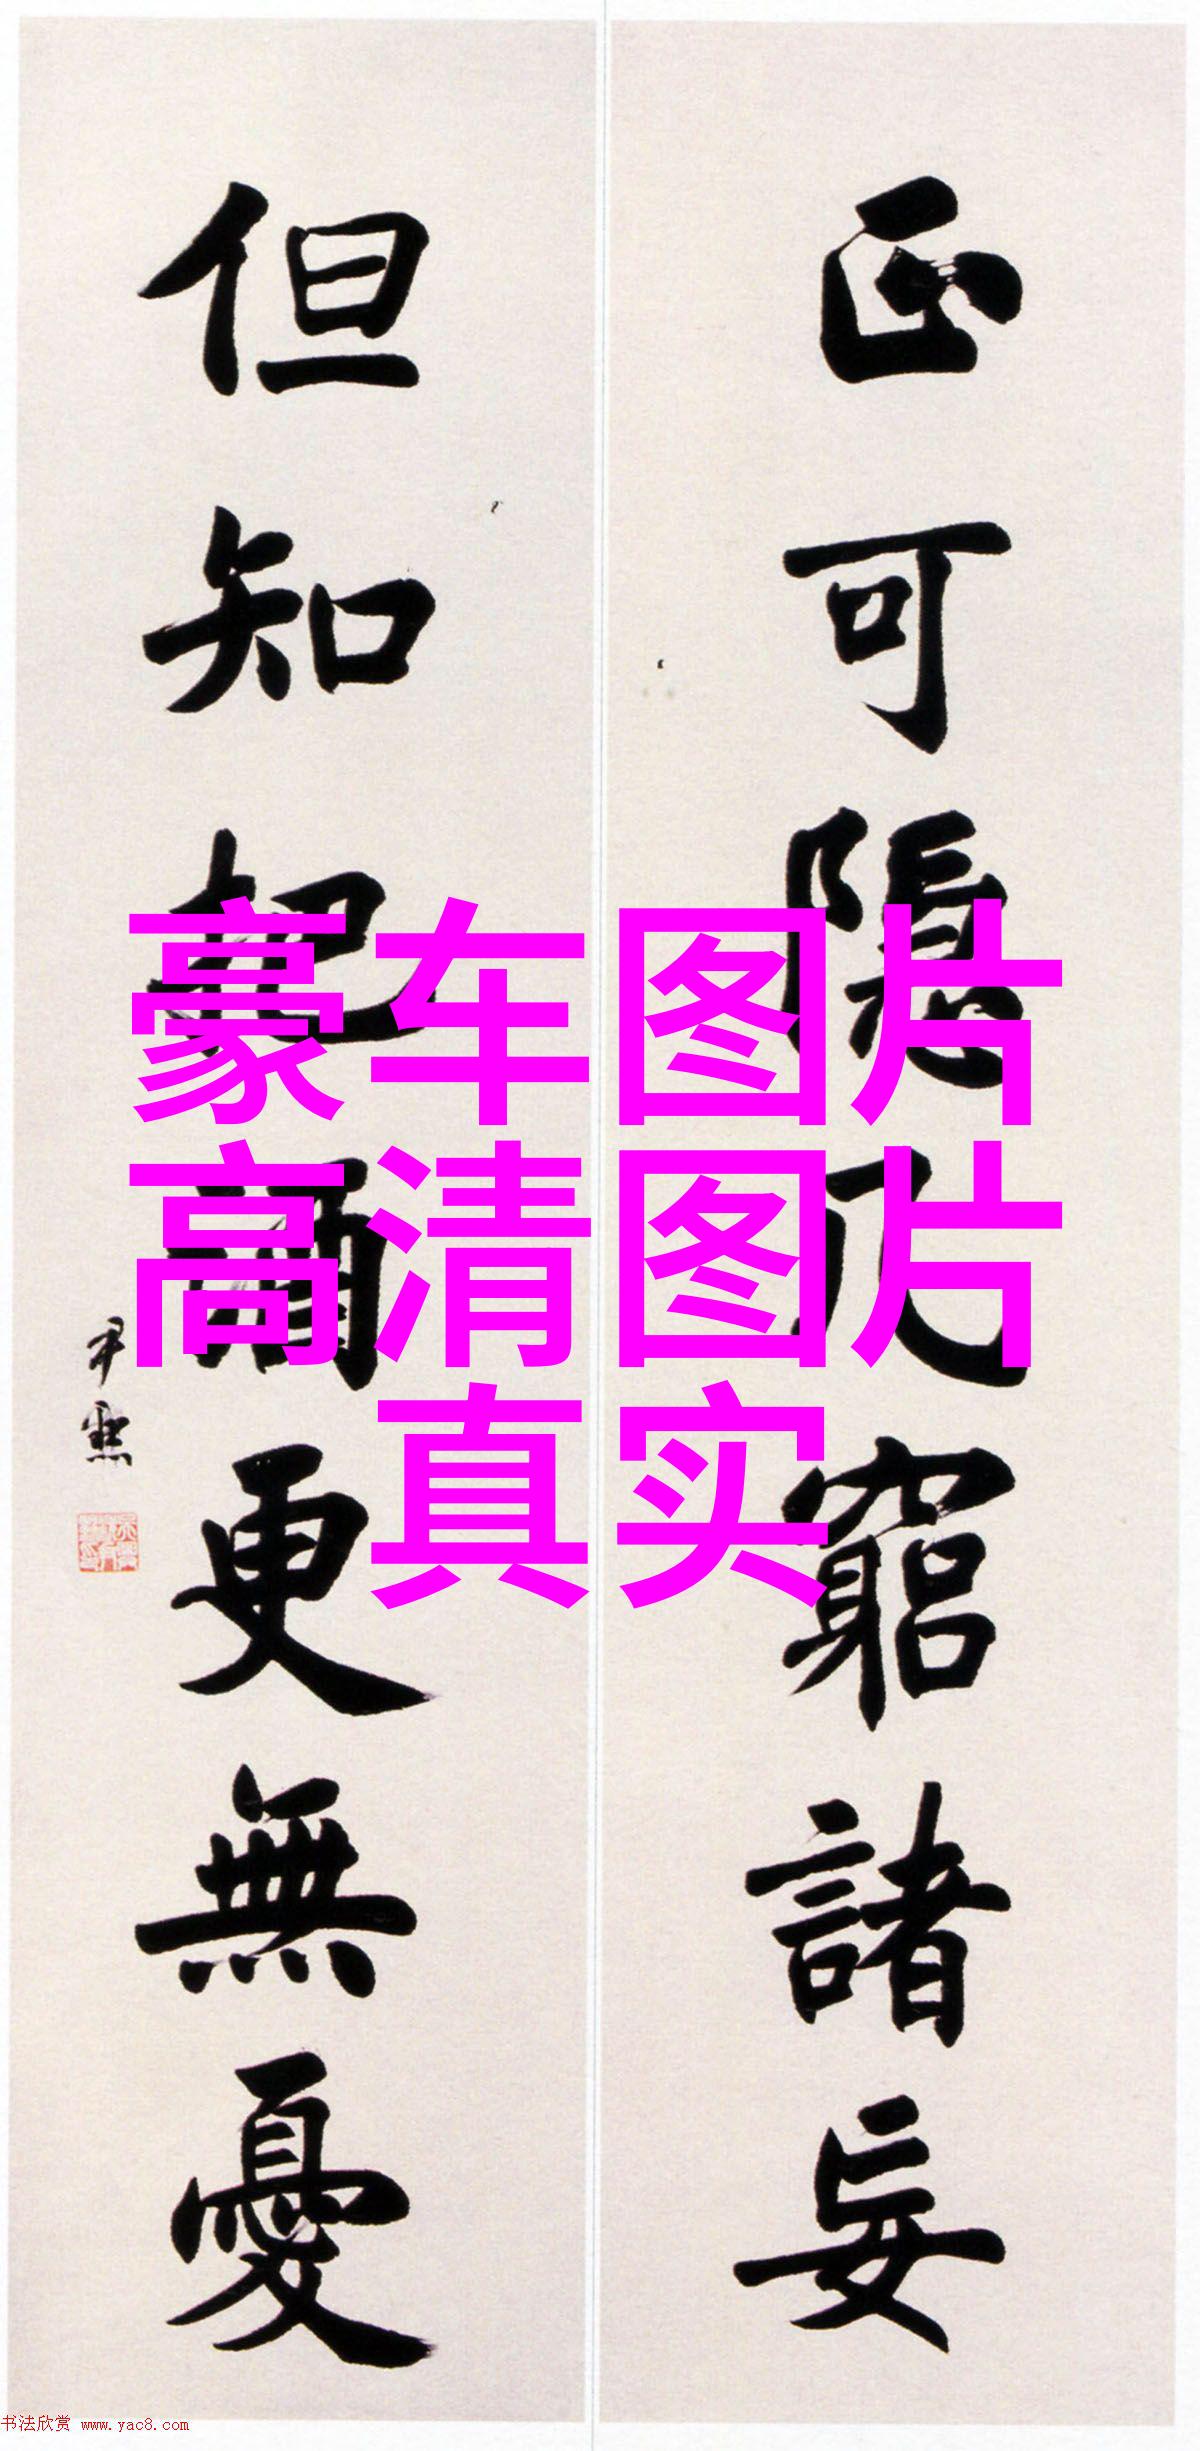 正可隱几窮諸妄
但知把酒更無憂
尹默
豪车图片
高清图片
真实
书法欣赏 www.yac8.com